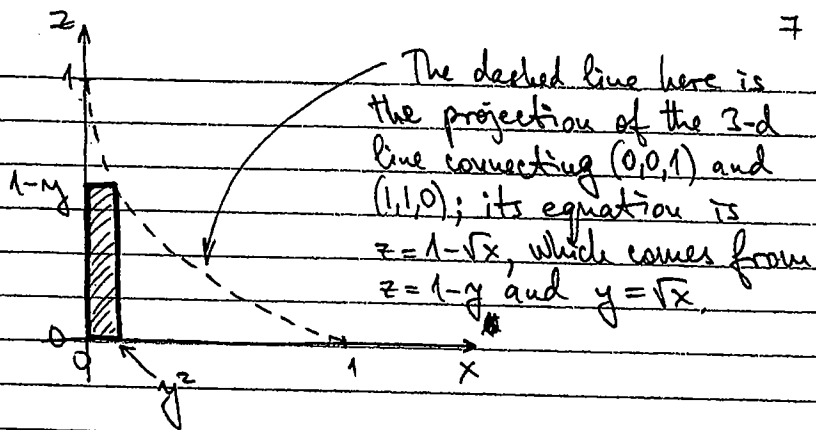 7
z
1
The dashed line here is
the projection of the 3-d
line connecting (0,0,1) and
(1,1,0); its equation is
z = 1-√x, which comes from
z = 1-y and y = √x.
1-y
0
0
1
x
y²